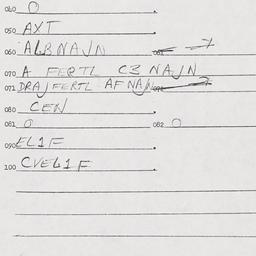 040 O
050 AXT
060 ALBNAJN 061
070 A FERTL C3 NAJN
071 DRAJ FERTL AF NAJN
080 CEN
081 O 082 O
090 EL1F
100 CVEL1F